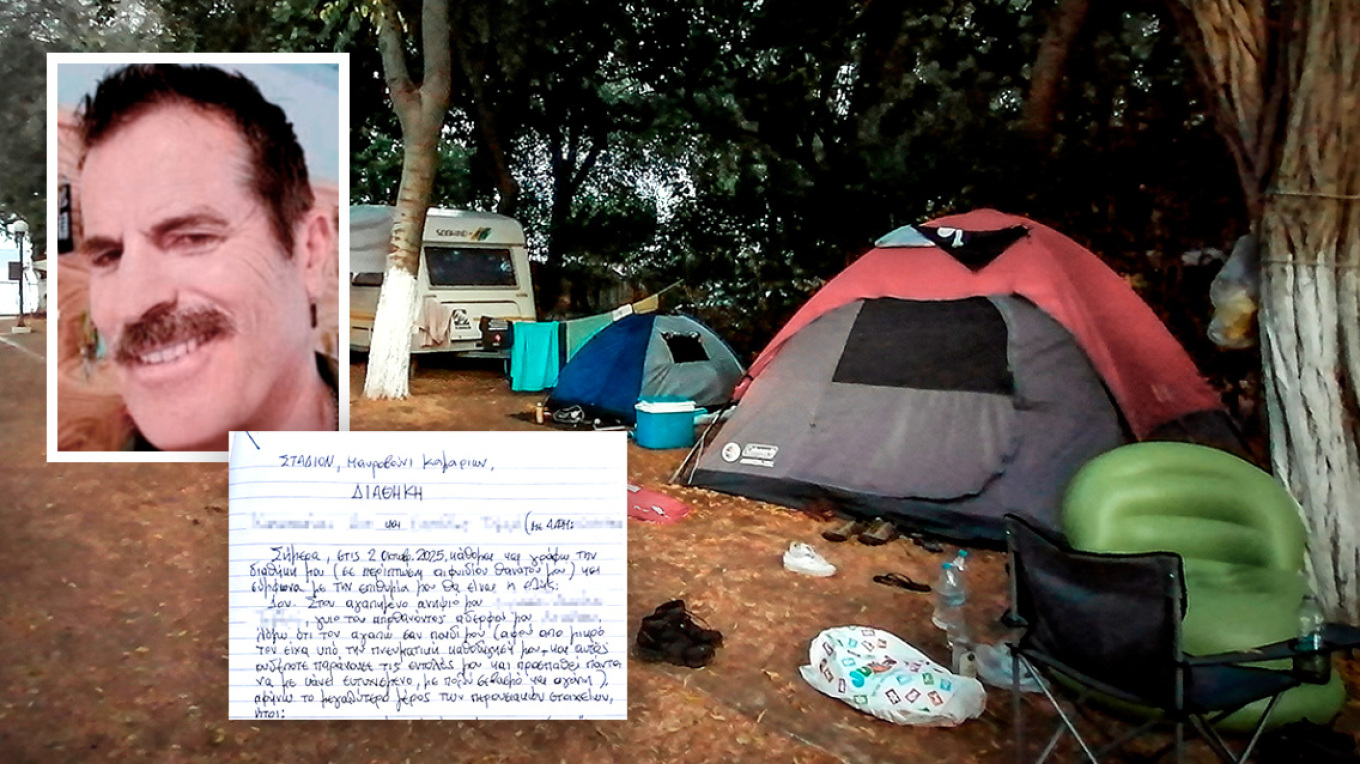 ΣΤΑΔΙΟΝ, Μαυροβούνι Καμαριών,
ΔΙΑΘΗΚΗ
και (με ΑΦΜ:
Σήμερα, στις 2 Οκτωβ. 2025, κάθομαι και γράφω την
διαθήκη μου (σε περίπτωση αιφνιδίου θανάτου μου) και
σύμφωνα με την επιθυμία μου θα είναι η εξής:
1ον. Στον αγαπημένο ανηψιό μου
, γυιο του αποθανόντος αδερφού μου
λόγω ότι τον αγαπώ σαν παιδί μου (αφού απο μικρό
τον είχα υπό την πνευματική καθοδήγησή μου, και αυτός
ουδέποτε παράκουσε τις εντολές μου και προσπαθεί πάντα
να με κάνει ευτυχισμένο, με πολύ σεβασμό και αγάπη),
αφήνω το μεγαλύτερο μέρος των περιουσιακών στοιχείων,
ήτοι:
Coleman